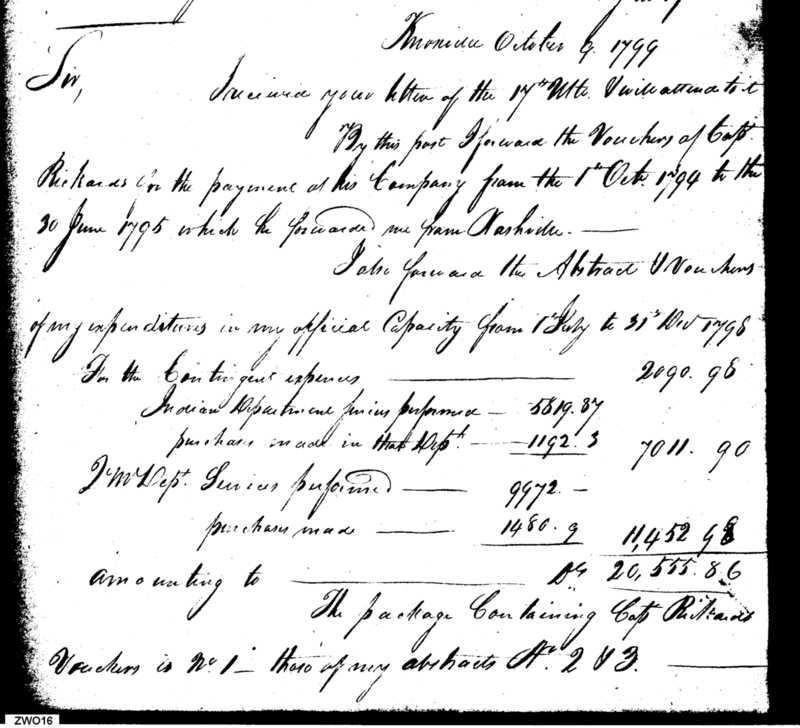 Knoxville October 9. 1799
Sir,
I received your letter of the 17th Ulto. I will attend to it
By this post I forward the Vouchers of Capt.
Rickards for the payment of his Company from the 1st Oct. 1794 to the
30 June 1795 which he forwarded me from Nashville. —
I also forward the Abstract & Vouchers
of my expenditures in my official Capacity from 1st July to 31st Decr 1798
For the Contingent expences — 2090. 98
Indian Department services performed — 5819. 87
purchases made in that Dept. — 1192. 3 7011. 90
Q M Dept. Services performed — 9972. —
purchases made — 1480. 9 11,452 98
amounting to — Ds 20,555. 86
The package Containing Capt Rickards
Vouchers is No 1 — those of my abstracts No 2 & 3. —
ZWO16